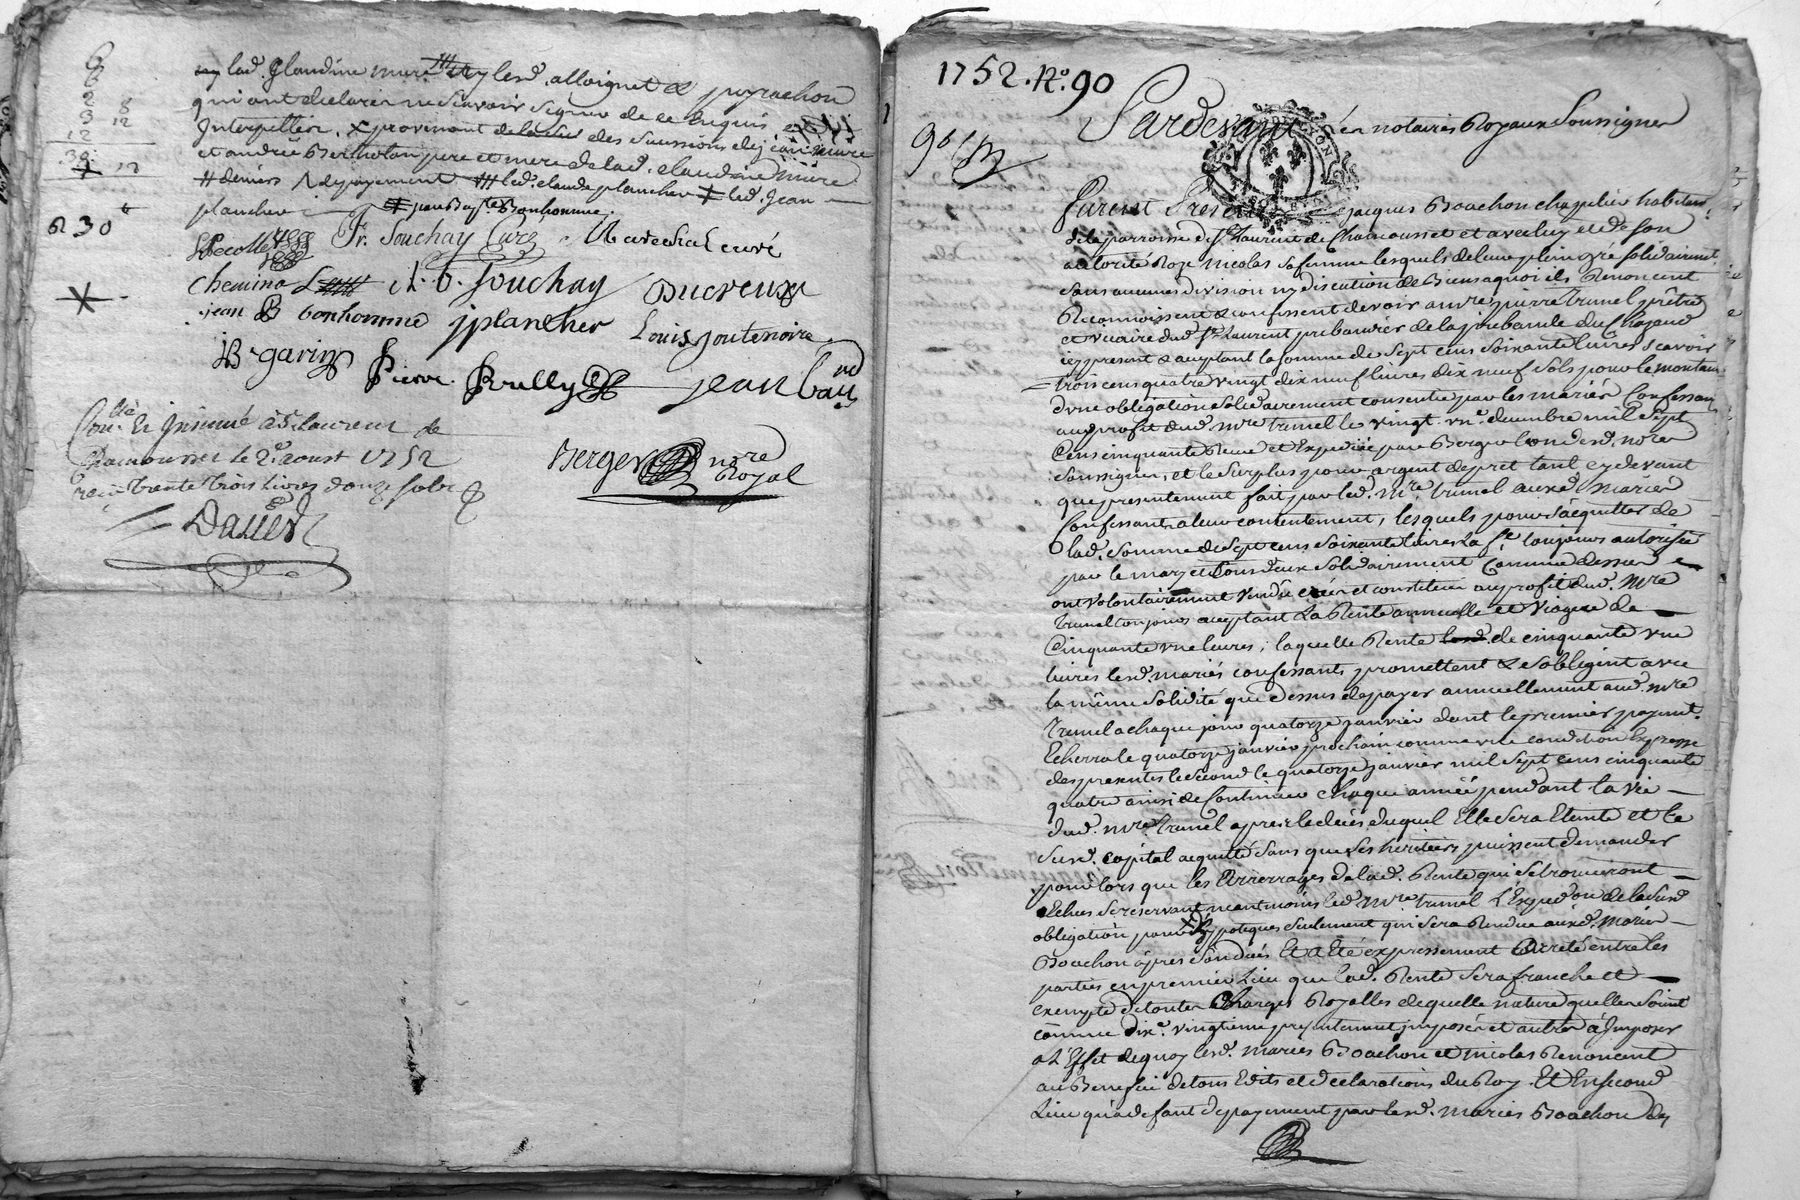 6
6
2 8
3 12
12
30 12
230 lt
lad. Glaudine mure ny lesd. alloignet & peyrachon
qui ont declarés ne scavoir signer de ce Enquis
Interpellés. x provenant des sucessions dej jean mure
et andrée Bertholon pere et mere de lad. claudine mure
# deniers depayement led. claude plancher led. Jean
plancher par Bap.te Bonhomme.
Recollet Fr. Souchay Curé Marechal curé
chemina c. b. Souchay Ducreux
jean B bonhomme jplancher Louis poutenoire
JB garin Pierre Rully jean
Con.lé Et Jnsinué a St Laurent de
Chamousset le 2. aoust 1752
reçu trente trois livres douze sols
Berger no.re Royal
Dallier
1752. No. 90
Pardevant les notaires Royaux Soussignes
furent Presens jacques Boachon chapelier habitant
de la parroisse de St. Laurent de Chamousset et avec luy et de son
autorité Roze Nicolas sa femme lesquels de leur plein gré solidairement
sans aucunes division ny discution de Biens aquoi ils Renoncent
Reconnoissent & confessent devoir a m.re pierre Trunel prêtre
et vicaire dud. St. Laurent prebandier de la prebande du Chazaud
icy present & acceptant la somme de sept cens soixante livres scavoir
trois cens quatre vingt dix neuf livres dix neuf sols pour le montan
d'une obligation solidairement consentie par les mariés Confessans
au profit dud. m.re trunel le vingt un decembre mil sept
Cens cinquante Reçue et Expediée par Berger l'un desd. no.res
soussignes, et le surplus pour argent de pret tant cy devant
que presentement fait par led. M.re trunel auxd. mariés
Confessants a leur contentement, lesquels pour s'acquitter de
lad. somme de sept cens soixante livres la f.e toujours autorisée
par le mary et Tous deux solidairement Comme dessus
ont volontairement vendu créé et constitué au profit dud. M.re
Trunel toujours acceptant La Rente annuelle et viagere de
Cinquante une livres; laquelle Rente de cinquante une
livres lesd. mariés confessants promettent & s'obligent avec
la même solidité que dessus de payer annuellement aud. m.re
Trunel a chaque jour quatorze janvier dont le premier payemt.
Echerra le quatorze janvier prochain comme une condition Expresse
des presentes le second le quatorze janvier mil sept cens cinquante
quatre ainsi de Continuer chaque année pendant la vie
dud. m.re trunel apres le deces duquel Elle sera Eteinte et le
susd. capital acquitté sans que ses heritiers puissent demander
pour lors que les Arrerages de lad. Rente qui se trouveront
Echus se reservant neantmoins led. m.re trunel l'Expedon de la susd
obligation pour hypotéques seulement qui sera Rendue auxd. mariés
Boachon après son deces Et a Eté expressement Arreté entre les
parties en premier Lieu que lad. Rente sera franche et
exempte de toutes Charges Royalles de quelle nature quelles soint
comme dix.e vingtieme presentement imposés et autres a Jmposer
a l'Effet de quoy lesd. mariés Boachon et nicolas Renoncent
au Benefice de tous Edits et declarations du Roy. Et En second
Lieu qu'a defaut de payement par lesd. mariés Boachon des